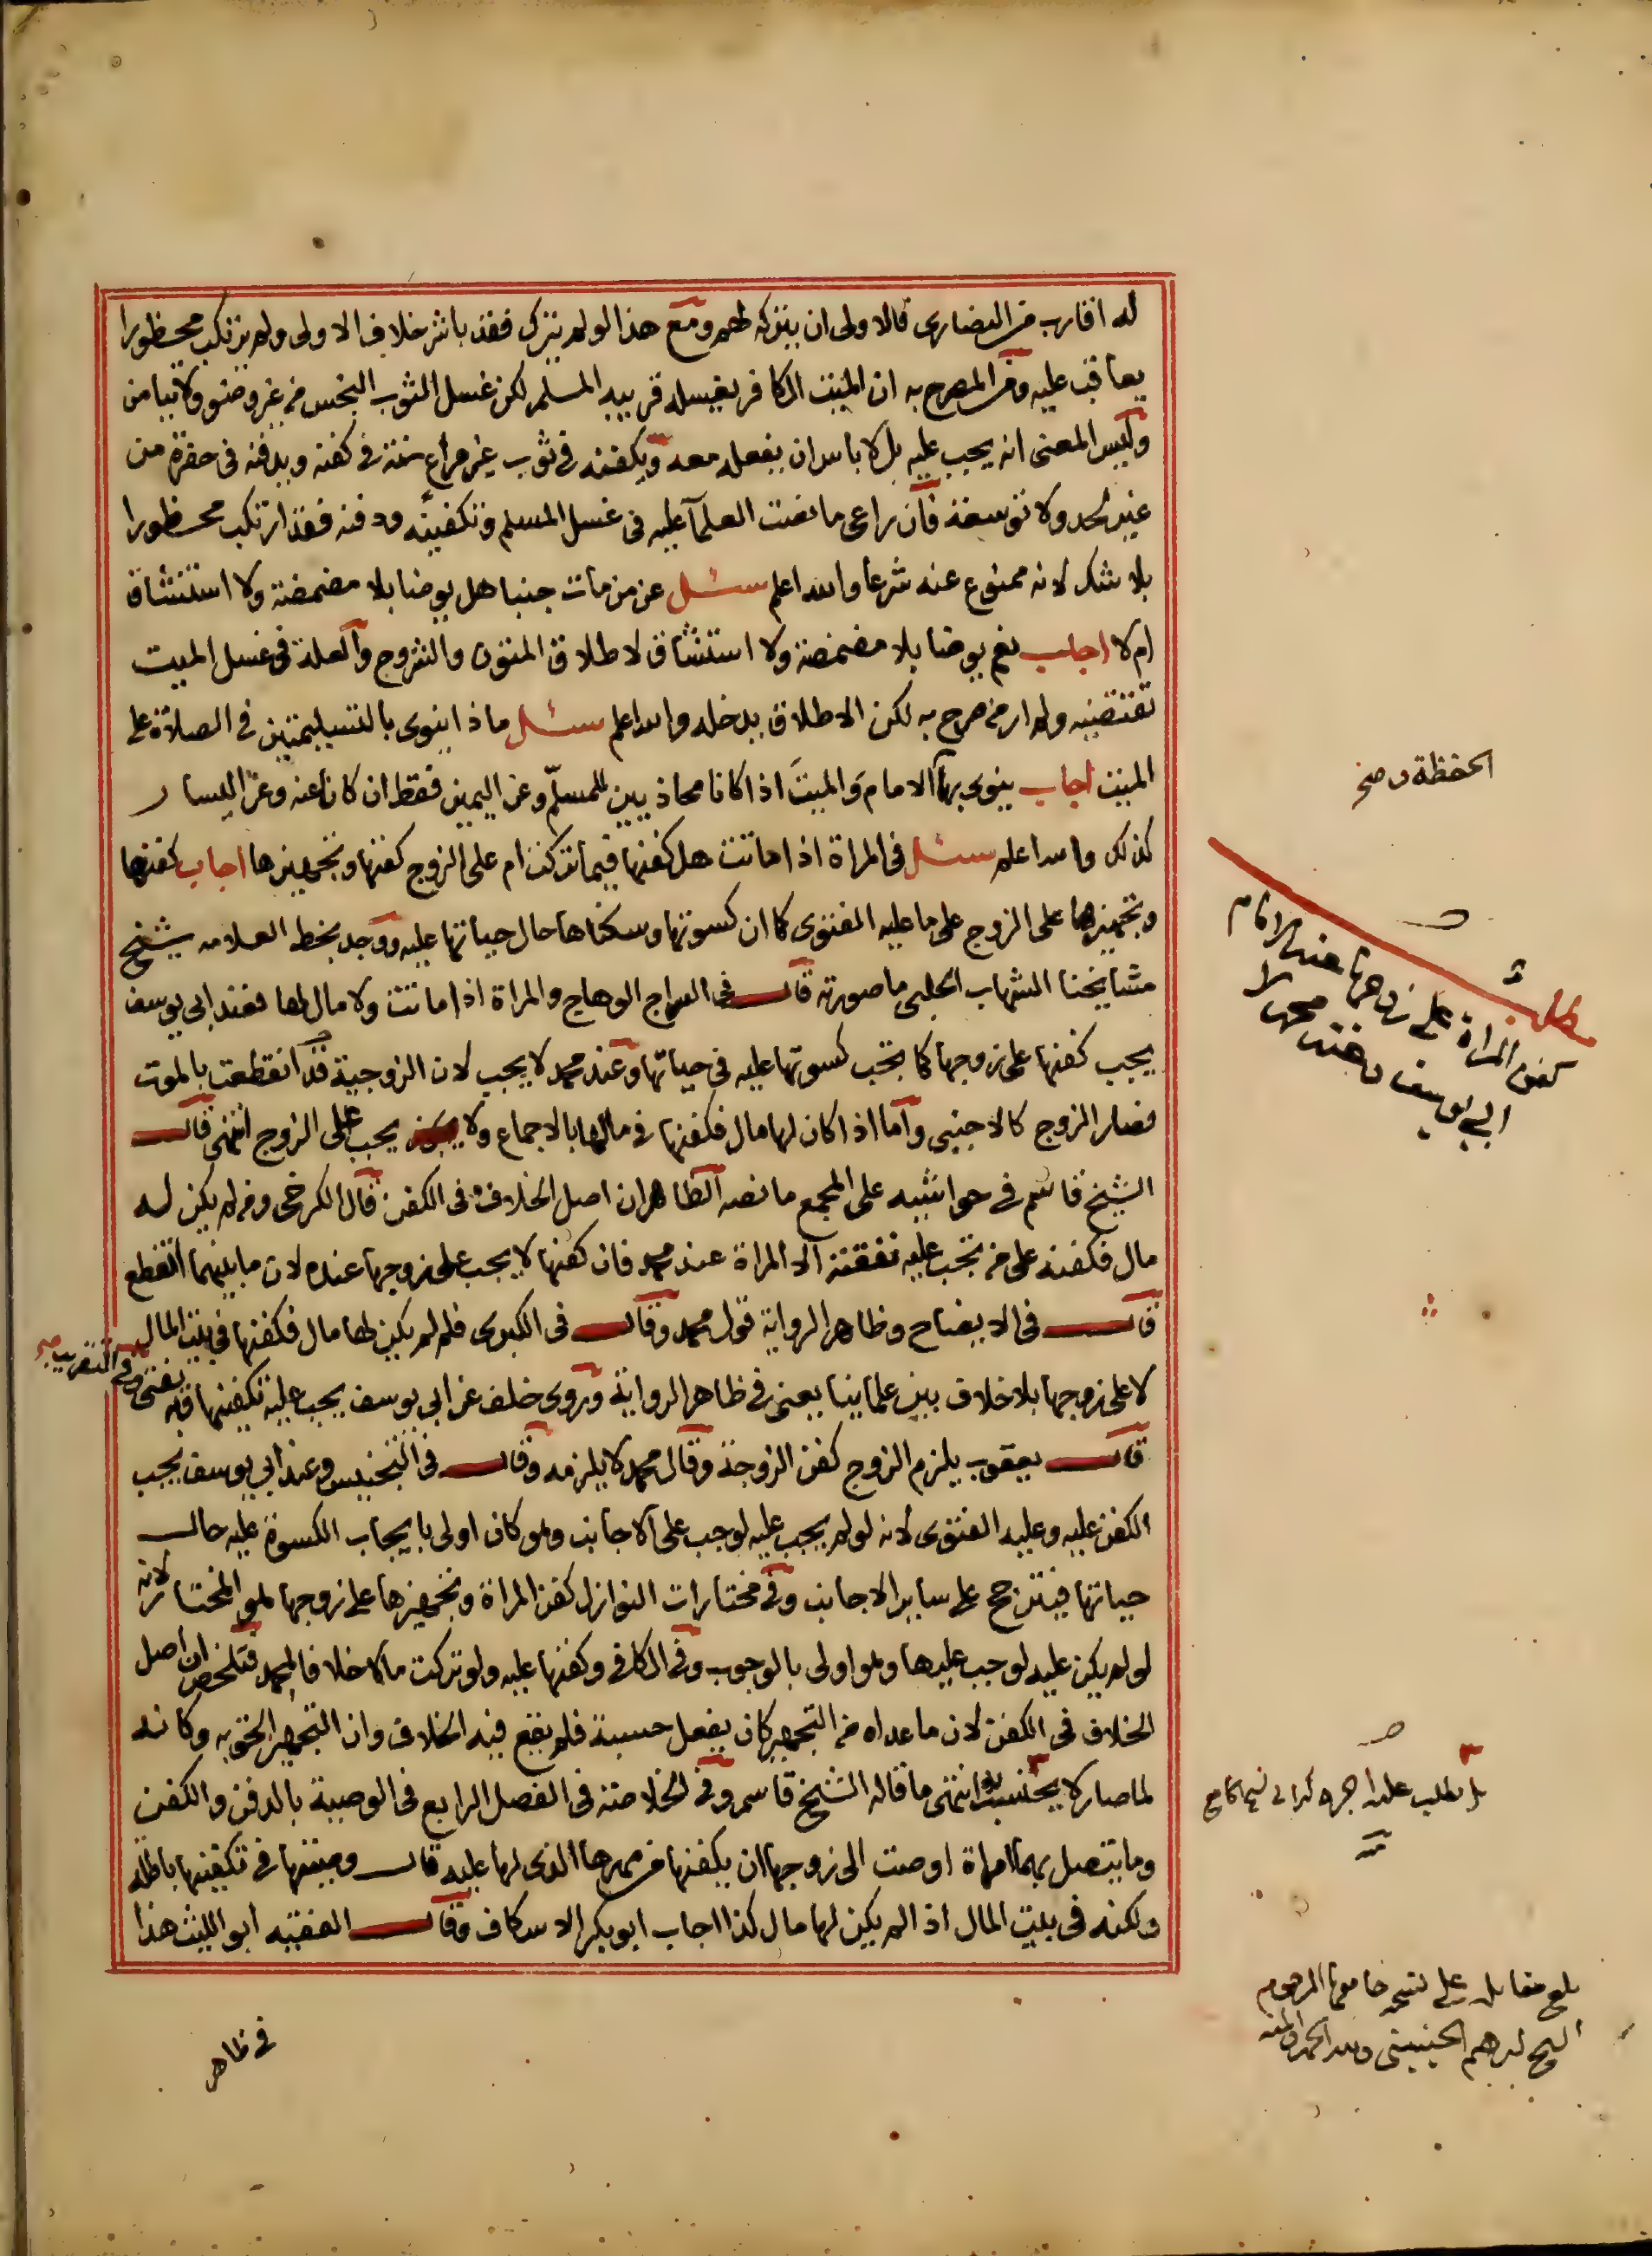 له اقارب من النصارى فالاولى ان يتركه لهم ومع هذا لو لم يترك فقد باشر خلاف الاولى ولم يرتكب محظورا
يعاقب عليه ومن المصرح به ان الميت الكافر يغسله قريبه المسلم لكن غسل الثوب النجس من غير وضوء ولا تيامن
وليس المعنى انه يجب عليه بل لا باس ان يفعله معه ويكفنه في ثوب غير مراع سنة في كفنه ويدفنه في حفرة من
غير لحد ولا توسعة فان راعى ما نصت العلما عليه في غسل المسلم وتكفينه ودفنه فقد ارتكب محظورا
بلا شك لانه ممنوع عنه شرعا والله اعلم سئل عن من مات جنبا هل يوضا بلا مضمضة ولا استنشاق
ام لا اجاب نعم يوضا بلا مضمضة ولا استنشاق لاطلاق المتون والشروح والعلة في غسل الميت
تقتضيه ولم ار من صرح به لكن الاطلاق يدخله والله اعلم سئل ماذا ينوى بالتسليمتين في الصلاة على
الميت اجاب ينوى بهما الامام والميت اذا كانا محاذيين للمسلم وعن اليمين فقط ان كانا عنه وعن اليسار
كذلك والله اعلم سئل في المراة اذا ماتت هل كفنها فيما تركت ام على الزوج كفنها وتجهيزها اجاب كفنها
وتجهيزها على الزوج على ما عليه الفتوى كما ان كسوتها وسكناها حال حياتها عليه ووجد بخط العلامه شيخ
مشايخنا الشهاب الحلبي ما صورته قال في السراج الوهاج والمراة اذا ماتت ولا مال لها فعند ابى يوسف
يجب كفنها على زوجها كما تجب كسوتها عليه في حياتها وعند محمد لا يجب لان الزوجية قد انقطعت بالموت
فصار الزوج كالاجنبي واما اذا كان لها مال فكفنها في مالها بالاجماع ولا يجب على الزوج انتهى قال
الشيخ قاسم في حواشيه على المجمع ما نصه الظاهر ان اصل الخلاف في الكفن قال الكرخي ومن لم يكن له
مال فكفنه على من تجب عليه نفقته الا المراة عند محمد فان كفنها لا يجب على زوجها عنده لان ما بينهما انقطع
قال في الايضاح وظاهر الرواية قول محمد وقال في الكبرى فلو لم يكن لها مال فكفنها في بيت المال
لا على زوجها بلا خلاف بين علماينا يعني في ظاهر الرواية وروى خلف عن ابي يوسف يجب عليه تكفينها وبه يفتى وفي التقريب صح
قال يعقوب يلزم الزوج كفن الزوجة وقال محمد لا يلزمه وقال في التجنيس وعند ابي يوسف يجب
الكفن عليه وعليه الفتوى لانه لو لم يجب عليه لوجب على الاجانب وهو كان اولى بايجاب الكسوة عليه حال
حياتها فيترجح على ساير الاجانب وفي مختارات النوازل كفن المراة وتجهيزها على زوجها هو المختار لانه
لو لم يكن عليه لوجب عليها وهو اولى بالوجوب وفي الكافي وكفنها عليه ولو تركت مالا خلافا لمحمد فتلخص ان اصل
الخلاف في الكفن لان ما عداه من التجهيز كان يفعل حسبة فلم يقع فيه الخلاف وان التجهيز الحق به وكانه
لما صار لا يحتسب به انتهى ما قاله الشيخ قاسم وفي الخلاصة في الفصل الرابع في الوصية بالدفن والكفن
وما يتصل بهما امراة اوصت الى زوجها ان يكفنها من مهرها الذى لها عليه قال وصيتها في تكفينها باطلة
ولكنه في بيت المال اذا لم يكن لها مال كذا اجاب ابو بكر الاسكاف وقال الفقيه ابو الليث هذا
في ظاهر
الحفظة صح
مطلب
كفن المراة على زوجها عند الامام
ابي يوسف وعند محمد لا
بل يطلب عليه اجره
بلغ مقابله على نسخة جامعها المرحوم
الشيخ ابرهيم الجينيني ولله الحمد والمنه